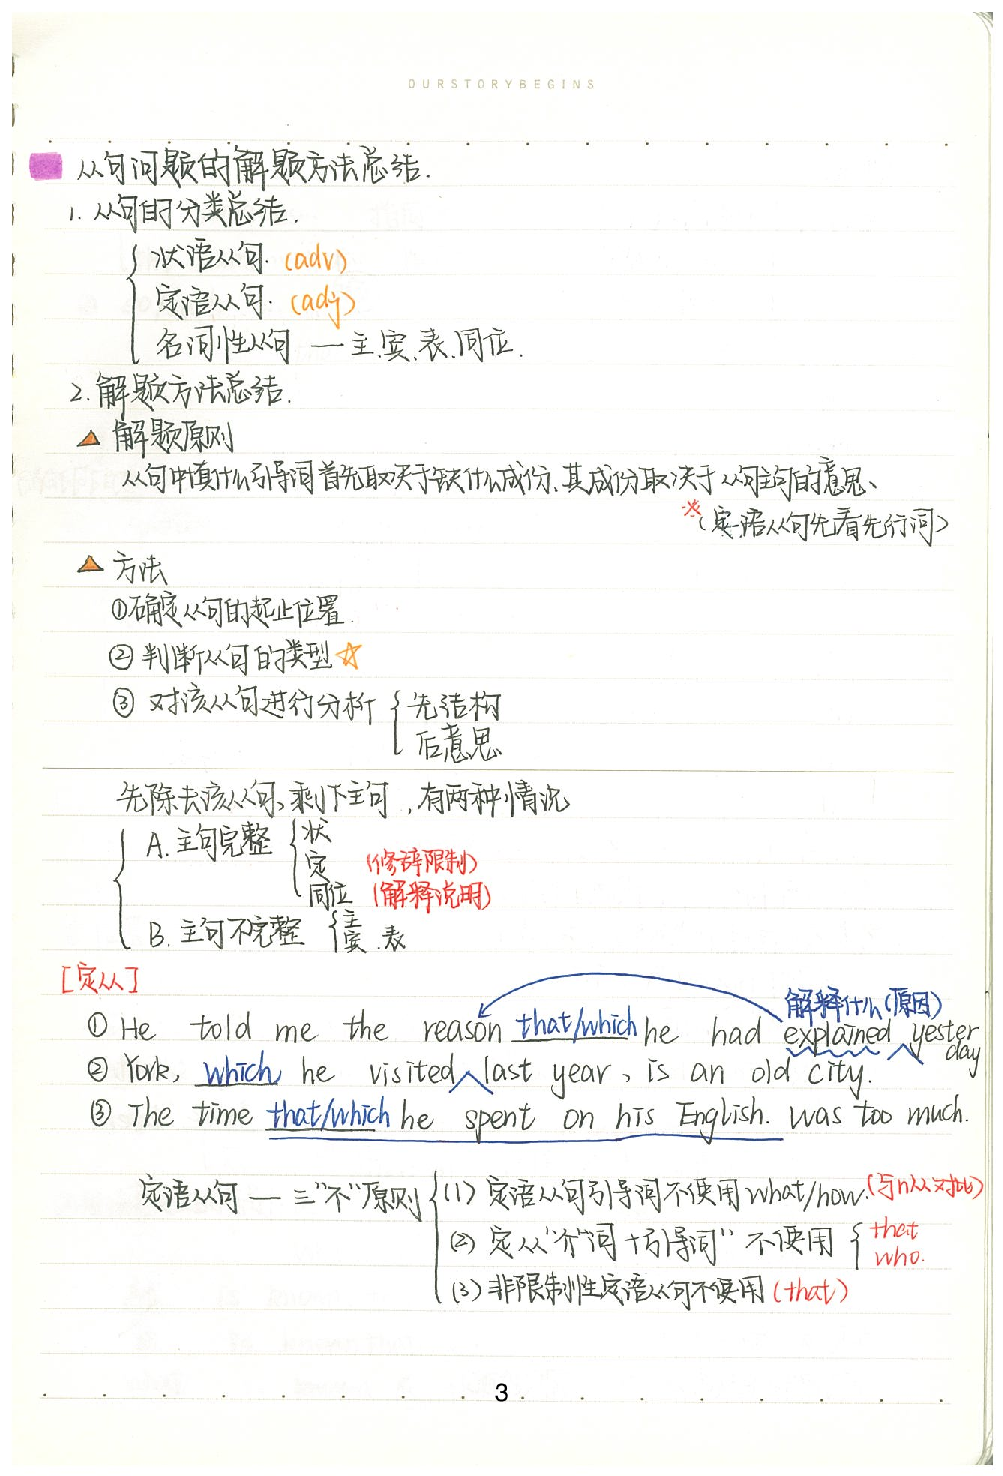 OURSTORYBEGINS
从句问题的解题方法总结.
1. 从句的分类总结.
状语从句. (adv)
定语从句. (adj)
名词性从句 — 主.宾.表.同位.
2. 解题方法总结.
解题原则
从句中填什么引导词首先取决于缺什么成份、其成份取决于从句主句的意思、
※(定语从句先看先行词)
方法
①确定从句的起止位置
② 判断从句的类型☆
③ 对该从句进行分析 { 先结构
后意思
先除去该从句、剩下主句,有两种情况
A. 主句完整 { 状
定 (修辞限制)
同位 (解释说明)
B. 主句不完整 { 主
宾.表
[定从]
解释什么(原因)
① He told me the reason that/which he had explained yester
day
② York, which he visited last year, is an old city.
③ The time that/which he spent on his English. was too much.
定语从句 — 三"不"原则 { (1) 定语从句引导词不使用what/how. (与n从对比)
(2) 定从"介词+引导词" 不使用 { that
who.
(3) 非限制性定语从句不使用 (that)
3